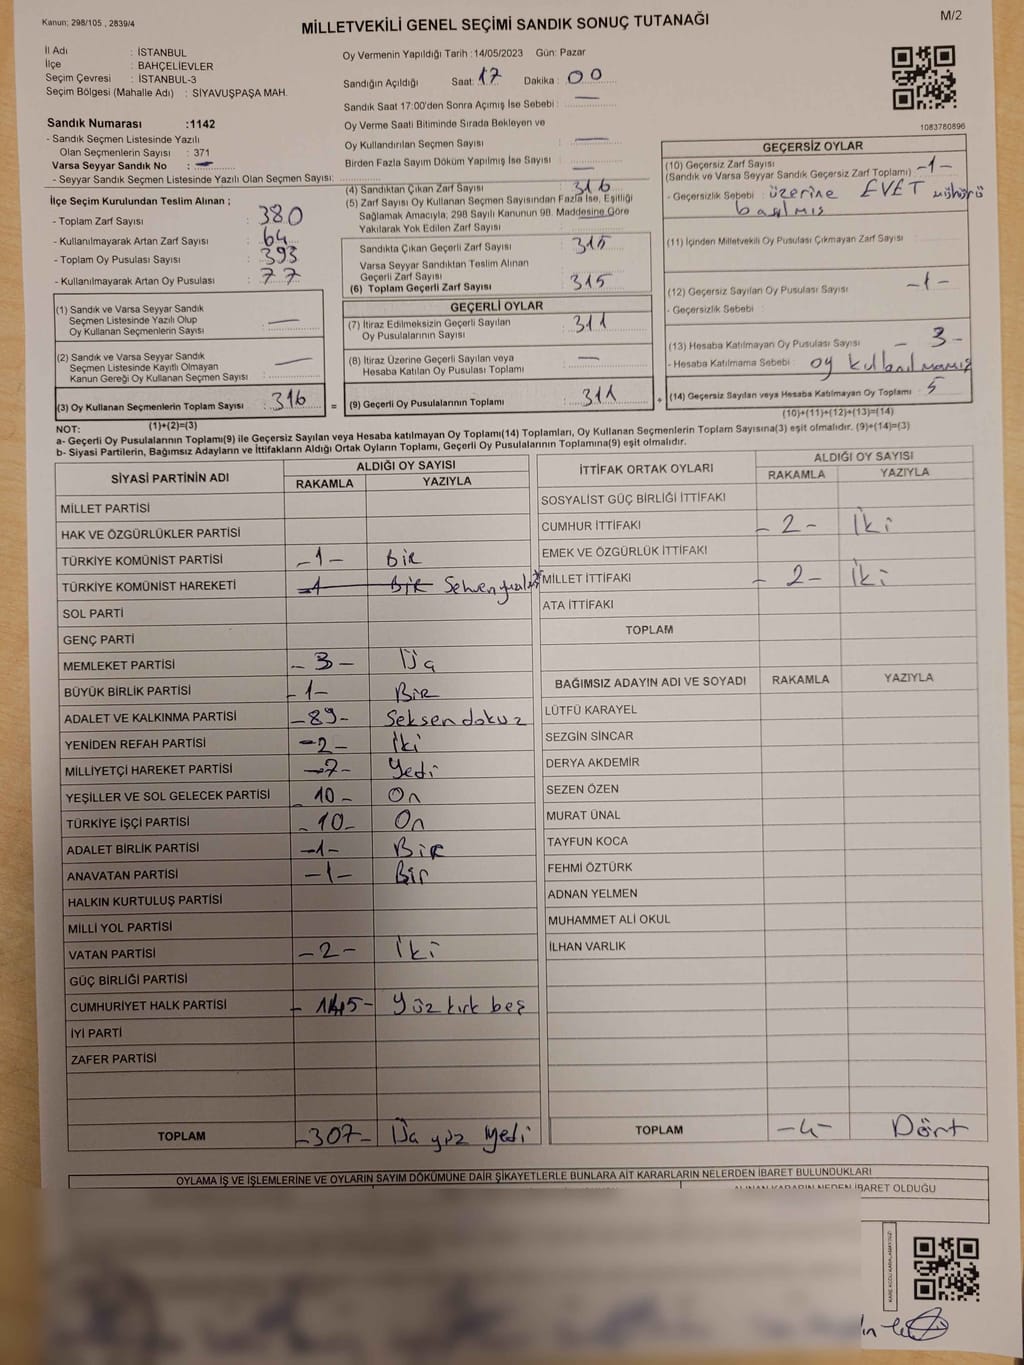 Kanun: 298/105 , 2839/4
MİLLETVEKİLİ GENEL SEÇİMİ SANDIK SONUÇ TUTANAĞI
M/2
İl Adı : İSTANBUL
İlçe : BAHÇELİEVLER
Seçim Çevresi : İSTANBUL-3
Seçim Bölgesi (Mahalle Adı) : SİYAVUŞPAŞA MAH.
Sandık Numarası :1142
- Sandık Seçmen Listesinde Yazılı
Olan Seçmenlerin Sayısı : 371
Varsa Seyyar Sandık No : —
- Seyyar Sandık Seçmen Listesinde Yazılı Olan Seçmen Sayısı:
İlçe Seçim Kurulundan Teslim Alınan ;
- Toplam Zarf Sayısı : 380
- Kullanılmayarak Artan Zarf Sayısı : 64
- Toplam Oy Pusulası Sayısı : 393
- Kullanılmayarak Artan Oy Pusulası : 77
(1) Sandık ve Varsa Seyyar Sandık
Seçmen Listesinde Yazılı Olup
Oy Kullanan Seçmenlerin Sayısı : —
(2) Sandık ve Varsa Seyyar Sandık
Seçmen Listesinde Kayıtlı Olmayan
Kanun Gereği Oy Kullanan Seçmen Sayısı : —
(3) Oy Kullanan Seçmenlerin Toplam Sayısı : 316
(1)+(2)=(3)
Oy Vermenin Yapıldığı Tarih :14/05/2023 Gün: Pazar
Sandığın Açıldığı Saat: 17 Dakika : 00
Sandık Saat 17:00'den Sonra Açımış İse Sebebi : —
Oy Verme Saati Bitiminde Sırada Bekleyen ve
Oy Kullandırılan Seçmen Sayısı : —
Birden Fazla Sayım Döküm Yapılmış İse Sayısı : —
(4) Sandıktan Çıkan Zarf Sayısı : 316
(5) Zarf Sayısı Oy Kullanan Seçmen Sayısından Fazla İse, Eşitliği
Sağlamak Amacıyla, 298 Sayılı Kanunun 98. Maddesine Göre
Yakılarak Yok Edilen Zarf Sayısı : —
Sandıkta Çıkan Geçerli Zarf Sayısı : 315
Varsa Seyyar Sandıktan Teslim Alınan
Geçerli Zarf Sayısı :
(6) Toplam Geçerli Zarf Sayısı : 315
GEÇERLİ OYLAR
(7) İtiraz Edilmeksizin Geçerli Sayılan
Oy Pusulalarının Sayısı : 311
(8) İtiraz Üzerine Geçerli Sayılan veya
Hesaba Katılan Oy Pusulası Toplamı : —
= (9) Geçerli Oy Pusulalarının Toplamı : 311 +
1083780896
GEÇERSİZ OYLAR
(10) Geçersiz Zarf Sayısı
(Sandık ve Varsa Seyyar Sandık Geçersiz Zarf Toplamı) : -1-
- Geçersizlik Sebebi : üzerine EVET mührü
basılmış
(11) İçinden Milletvekili Oy Pusulası Çıkmayan Zarf Sayısı :
(12) Geçersiz Sayılan Oy Pusulası Sayısı : -1-
- Geçersizlik Sebebi :
(13) Hesaba Katılmayan Oy Pusulası Sayısı : - 3 -
- Hesaba Katılmama Sebebi : oy kullanılmamış
(14) Geçersiz Sayılan veya Hesaba Katılmayan Oy Toplamı : 5
(10)+(11)+(12)+(13)=(14)
NOT:
a- Geçerli Oy Pusulalarının Toplamı(9) ile Geçersiz Sayılan veya Hesaba katılmayan Oy Toplamı(14) Toplamları, Oy Kullanan Seçmenlerin Toplam Sayısına(3) eşit olmalıdır. (9)+(14)=(3)
b- Siyasi Partilerin, Bağımsız Adayların ve İttifakların Aldığı Ortak Oyların Toplamı, Geçerli Oy Pusulalarının Toplamına(9) eşit olmalıdır.
SİYASİ PARTİNİN ADI ALDIĞI OY SAYISI
RAKAMLA YAZIYLA
MİLLET PARTİSİ
HAK VE ÖZGÜRLÜKLER PARTİSİ
TÜRKİYE KOMÜNİST PARTİSİ -1- Bir
TÜRKİYE KOMÜNİST HAREKETİ -1 Bir Sehven
SOL PARTİ
GENÇ PARTİ
MEMLEKET PARTİSİ - 3 - Üç
BÜYÜK BİRLİK PARTİSİ -1- Bir
ADALET VE KALKINMA PARTİSİ -89- Seksen dokuz
YENİDEN REFAH PARTİSİ -2- İki
MİLLİYETÇİ HAREKET PARTİSİ -7- Yedi
YEŞİLLER VE SOL GELECEK PARTİSİ - 10 - On
TÜRKİYE İŞÇİ PARTİSİ - 10 - On
ADALET BİRLİK PARTİSİ -1- Bir
ANAVATAN PARTİSİ -1- Bir
HALKIN KURTULUŞ PARTİSİ
MİLLİ YOL PARTİSİ
VATAN PARTİSİ -2- İki
GÜÇ BİRLİĞİ PARTİSİ
CUMHURİYET HALK PARTİSİ - 145- Yüz kırk beş
İYİ PARTİ
ZAFER PARTİSİ
TOPLAM -307- Üç yüz yedi
İTTİFAK ORTAK OYLARI ALDIĞI OY SAYISI
RAKAMLA YAZIYLA
SOSYALİST GÜÇ BİRLİĞİ İTTİFAKI
CUMHUR İTTİFAKI - 2 - İki
EMEK VE ÖZGÜRLÜK İTTİFAKI
MİLLET İTTİFAKI - 2 - İki
ATA İTTİFAKI
TOPLAM
BAĞIMSIZ ADAYIN ADI VE SOYADI RAKAMLA YAZIYLA
LÜTFÜ KARAYEL
SEZGİN SİNCAR
DERYA AKDEMİR
SEZEN ÖZEN
MURAT ÜNAL
TAYFUN KOCA
FEHMİ ÖZTÜRK
ADNAN YELMEN
MUHAMMET ALİ OKUL
İLHAN VARLIK
TOPLAM -4- Dört
OYLAMA İŞ VE İŞLEMLERİNE VE OYLARIN SAYIM DÖKÜMÜNE DAİR ŞİKAYETLERLE BUNLARA AİT KARARLARIN NELERDEN İBARET BULUNDUKLARI
ALINAN KARARIN NEDEN İBARET OLDUĞU